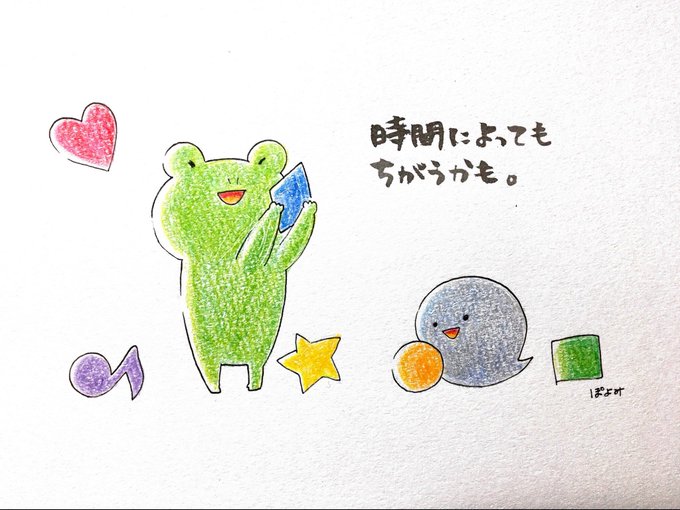 時間によっても
ちがうかも。
ぽよみ